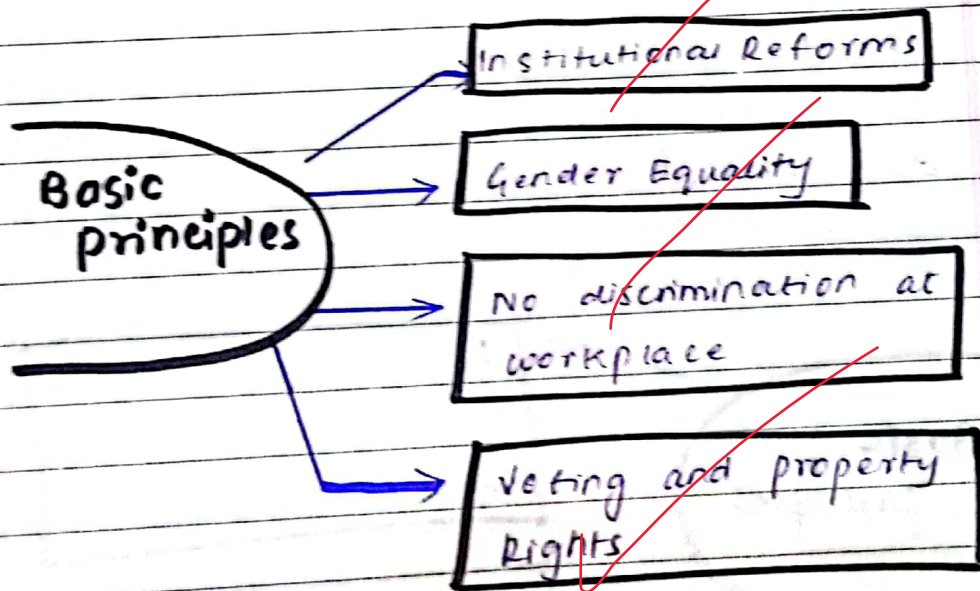 Basic
principles
Institutional Reforms
Gender Equality
No discrimination at
workplace
Voting and property
Rights